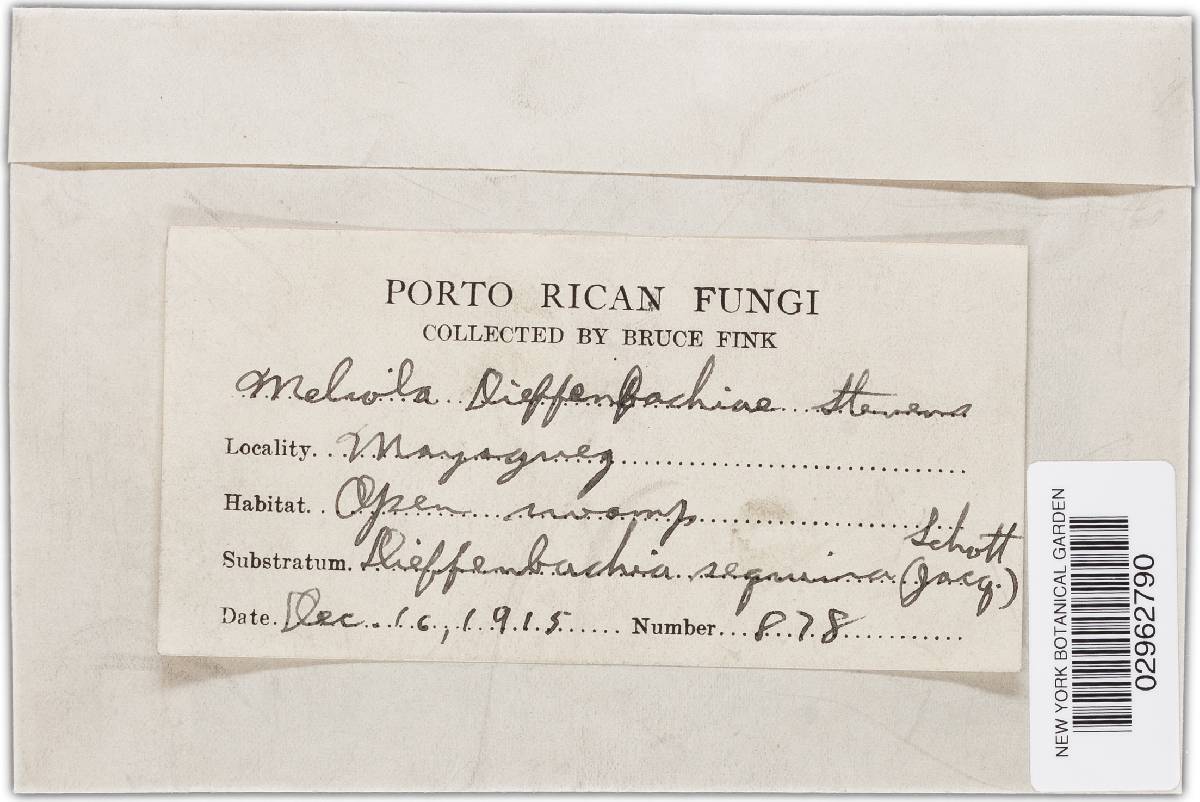 PORTO RICAN FUNGI
COLLECTED BY BRUCE FINK
Meliola Dieffenbachiae Stevens
Locality. Mayaguez
Habitat. Open swamp
Schott
Substratum. Dieffenbachia sequina (Jacq.)
Date. Dec. 16, 1915 Number 878
NEW YORK BOTANICAL GARDEN
02962790